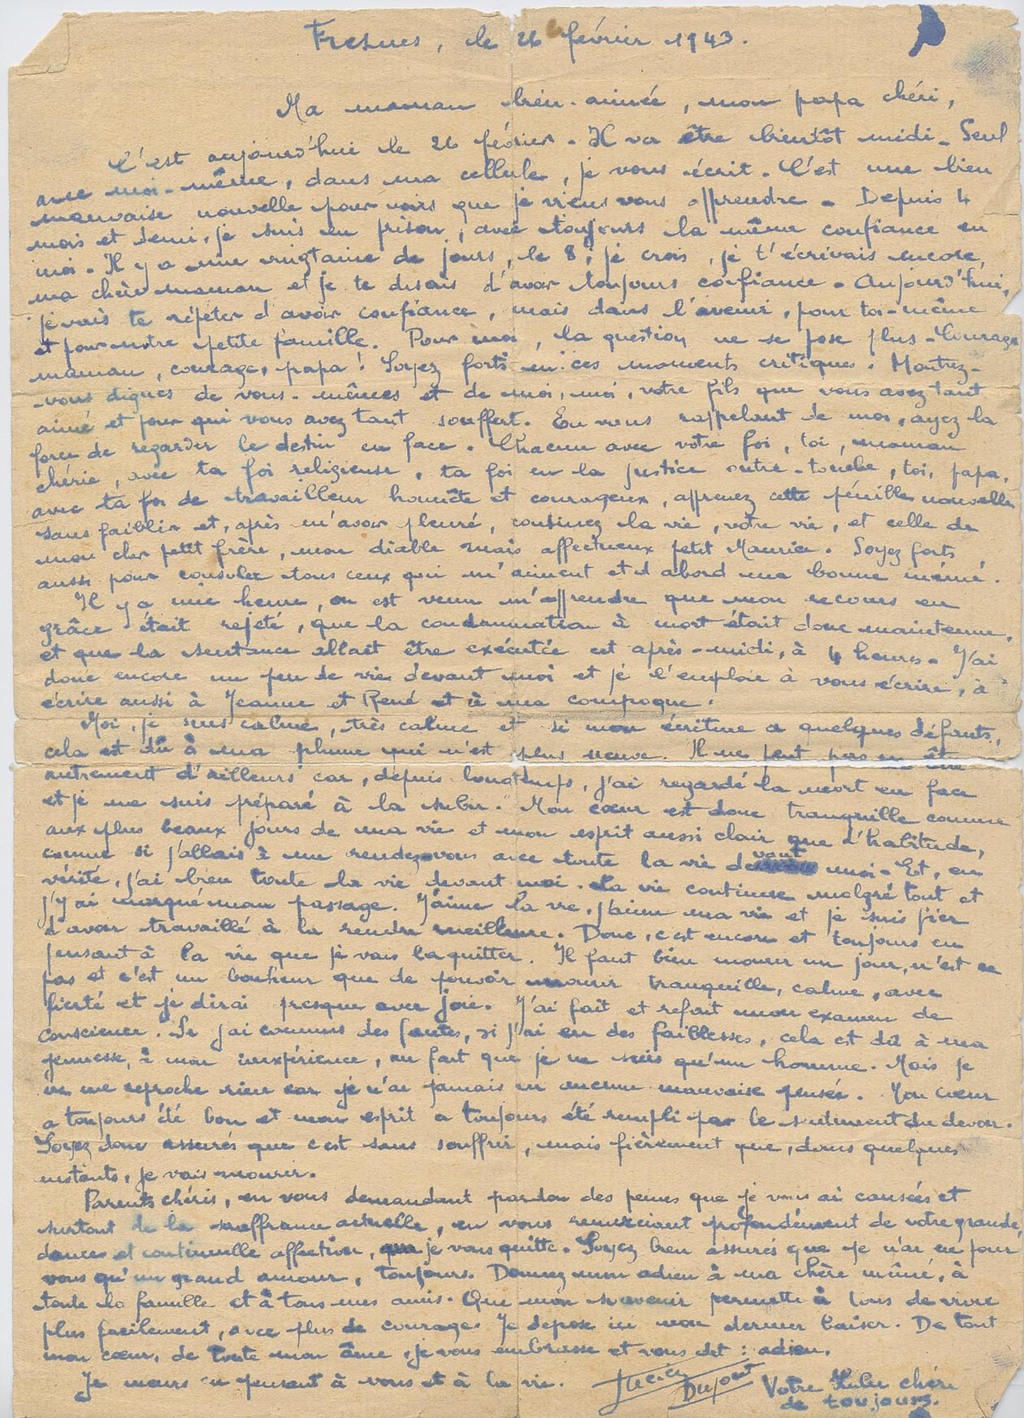 Fresnes, le 26 février 1943.
Ma maman bien-aimée, mon papa chéri,
C'est aujourd'hui le 26 février. Il va être bientôt midi. Seul
avec moi-même, dans ma cellule, je vous écrit. C'est une bien
mauvaise nouvelle pour vous que je viens vous apprendre. Depuis 4
mois et demi, je suis en prison, avec toujours la même confiance en
moi. Il y a une vingtaine de jours, le 8, je crois, je t'écrivais encore,
ma chère maman et je te disais d'avoir toujours confiance. Aujourd'hui,
je vais te répéter d'avoir confiance, mais dans l'avenir, pour toi-même
et pour notre petite famille. Pour moi, la question ne se pose plus. Courage
maman, courage, papa! Soyez forts en ces moments critiques. Montrez-
vous dignes de vous-mêmes et de moi, moi, votre fils que vous avez tant
aimé et pour qui vous avez tant souffert. En vous rappelant de moi, ayez la
force de regarder le destin en face. Chacun avec votre foi, toi, maman
chérie, avec ta foi religieuse, ta foi en la justice outre-tombe, toi, papa,
avec ta foi de travailleur honnête et courageux, apprenez cette pénible nouvelle
sans faiblir et, après m'avoir pleuré, continuez la vie, votre vie, et celle de
mon cher petit frère, mon diable mais affectueux petit Maurice. Soyez forts
aussi pour consoler tous ceux qui m'aiment et d'abord ma bonne mémé.
Il y a une heure, on est venu m'apprendre que mon recours en
grâce était rejeté, que la condamnation à mort était donc maintenue,
et que la sentance allait être exécutée cet après-midi, à 4 heures. J'ai
donc encore un peu de vie devant moi et je l'emploie à vous écrire, à
écrire aussi à Jeanne et René et à ma compagne.
Moi, je suis calme, très calme et si mon écriture a quelques défauts,
cela est dû à ma plume qui n'est plus neuve. Il ne peut pas en être
autrement d'ailleurs car, depuis longtemps, j'ai regardé la mort en face
et je me suis préparé à la subir. Mon cœur est donc tranquille comme
aux plus beaux jours de ma vie et mon esprit aussi clair que d'habitude,
comme si j'allais à un rendez-vous avec toute la vie devant moi. Et, en
vérité, j'ai bien toute la vie devant moi. La vie continue malgré tout et
j'y ai marqué mon passage. J'aime la vie, j'aime ma vie et je suis fier
d'avoir travaillé à la rendre meilleure. Donc, c'est encore et toujours en
pensant à la vie que je vais la quitter. Il faut bien mourir un jour, n'est ce
pas et c'est un bonheur que de pouvoir mourir tranquille, calme, avec
fierté et je dirai presque avec joie. J'ai fait et refait mon examen de
conscience. Si j'ai commis des fautes, si j'ai eu des faiblesses, cela est dû à ma
jeunesse, à mon inexpérience, au fait que je ne suis qu'un homme. Mais je
ne me reproche rien car je n'ai jamais eu aucune mauvaise pensée. Mon cœur
a toujours été bon et mon esprit a toujours été rempli par le sentiment du devoir.
Soyez donc assurés que c'est sans souffrir, mais fièrement que, dans quelques
instants, je vais mourir.
Parents chéris, en vous demandant pardon des peines que je vous ai causées et
surtout de la souffrance actuelle, en vous remerciant profondément de votre grande,
douce et continuelle affection, je vous quitte. Soyez bien assurés que je n'ai eu pour
vous qu'un grand amour, toujours. Donnez mon adieu à ma chère mémé, à
toute la famille et à tous mes amis. Que mon souvenir permette à tous de vivre
plus facilement, avec plus de courage. Je dépose ici mon dernier baiser. De tout
mon cœur, de toute mon âme, je vous embrasse et vous dit: adieu.
Je meurs en pensant à vous et à la vie. Lucien Votre Lulu chéri
Dupont de toujours.